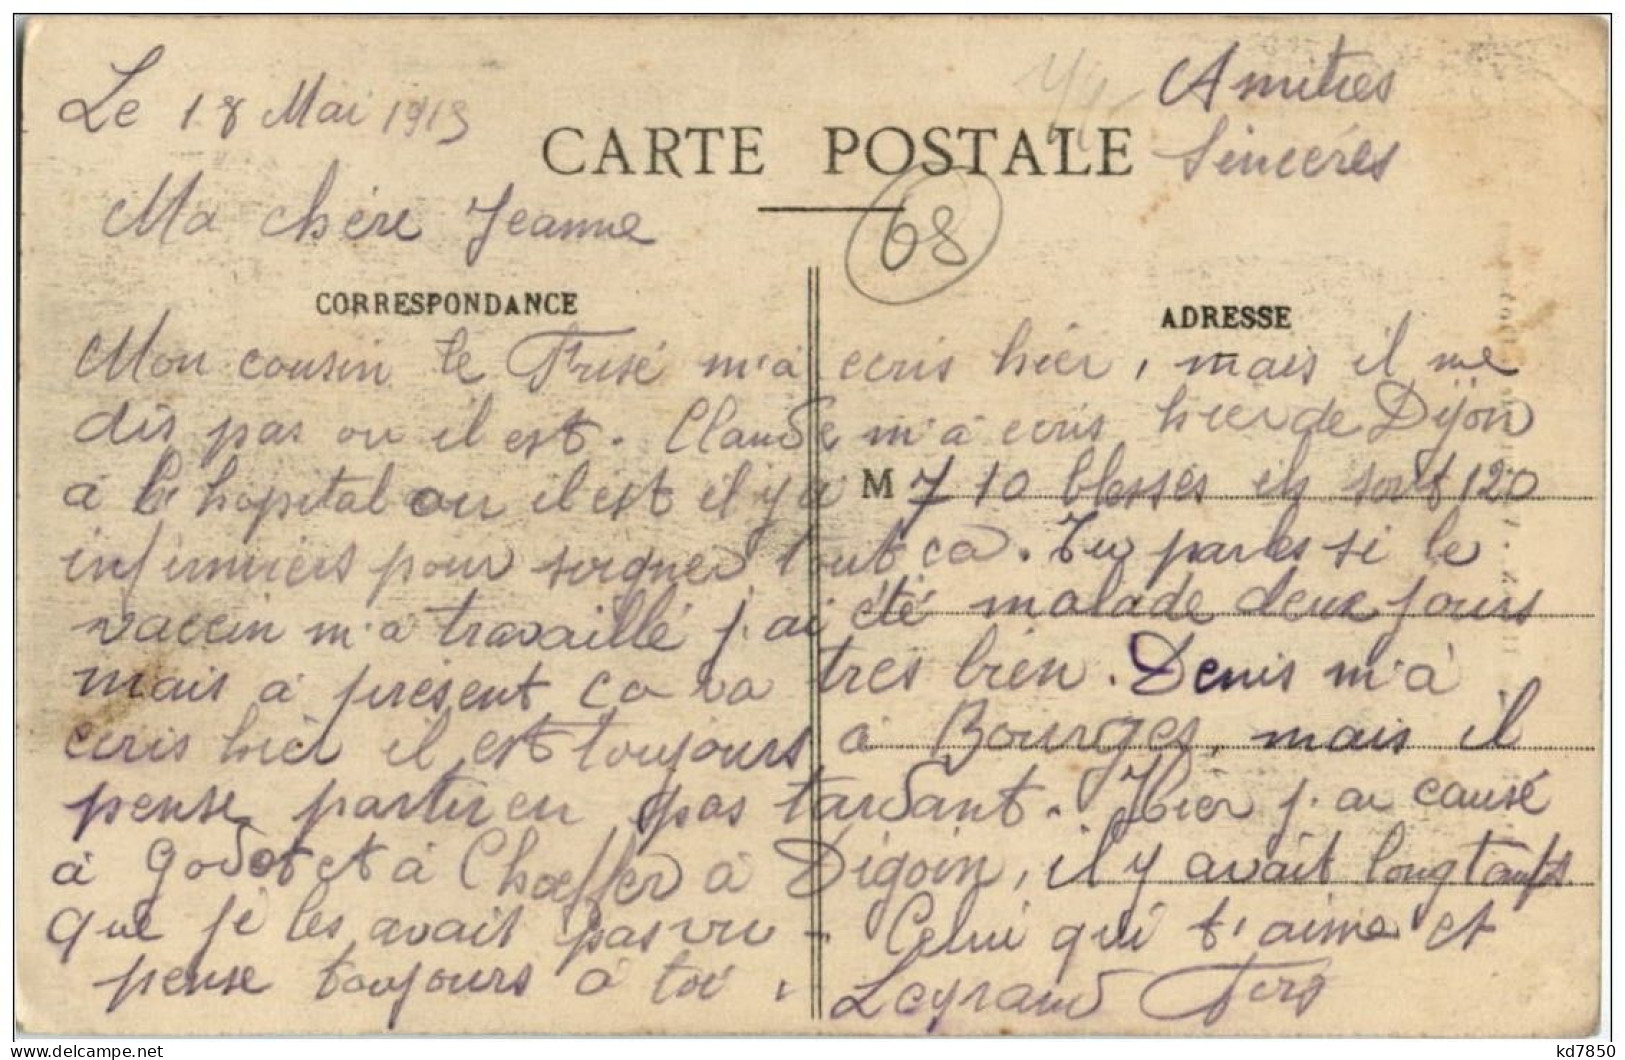 Le 18 Mai 1915
Amities
Sincéres
CARTE POSTALE
Ma chère Jeanne
68
CORRESPONDANCE
ADRESSE
Mon cousin le Frisé m'à ecris hier, mais il me
dis pas ou il est. Claude m'à ecris hier de Dijon
à l'hopital ou il est il y a M 710 blessés ils sont 120
infirmiers pour soigner tout ca. Tu parles si le
vaccin m'a travaillé j.ai été malade deux jours
mais à présent ca va tres bien. Denis m'à
ecris hier il est toujours à Bourges, mais il
pense partir en pas tardant. Hier j.ai causé
à Godot et à Choeffer à Digoin, il y avait longtamps
que je les avait pas vu - Celui qui t'aime et
pense toujours à toi. Legrand
kd7850